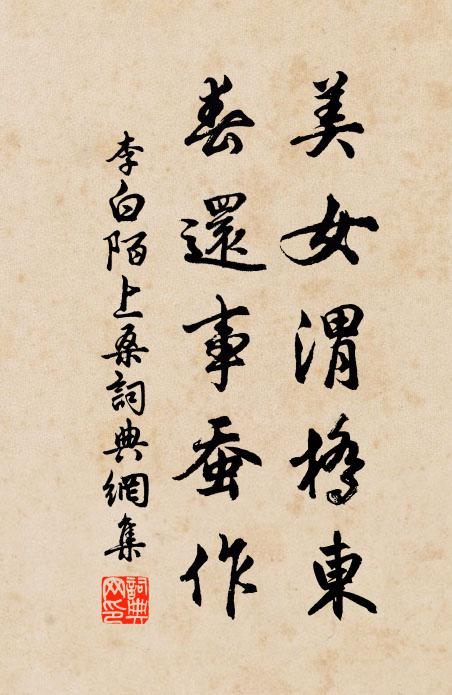 美女渭橋東
春還事蚕作
李白陌上桑詞典網集
詞典網印